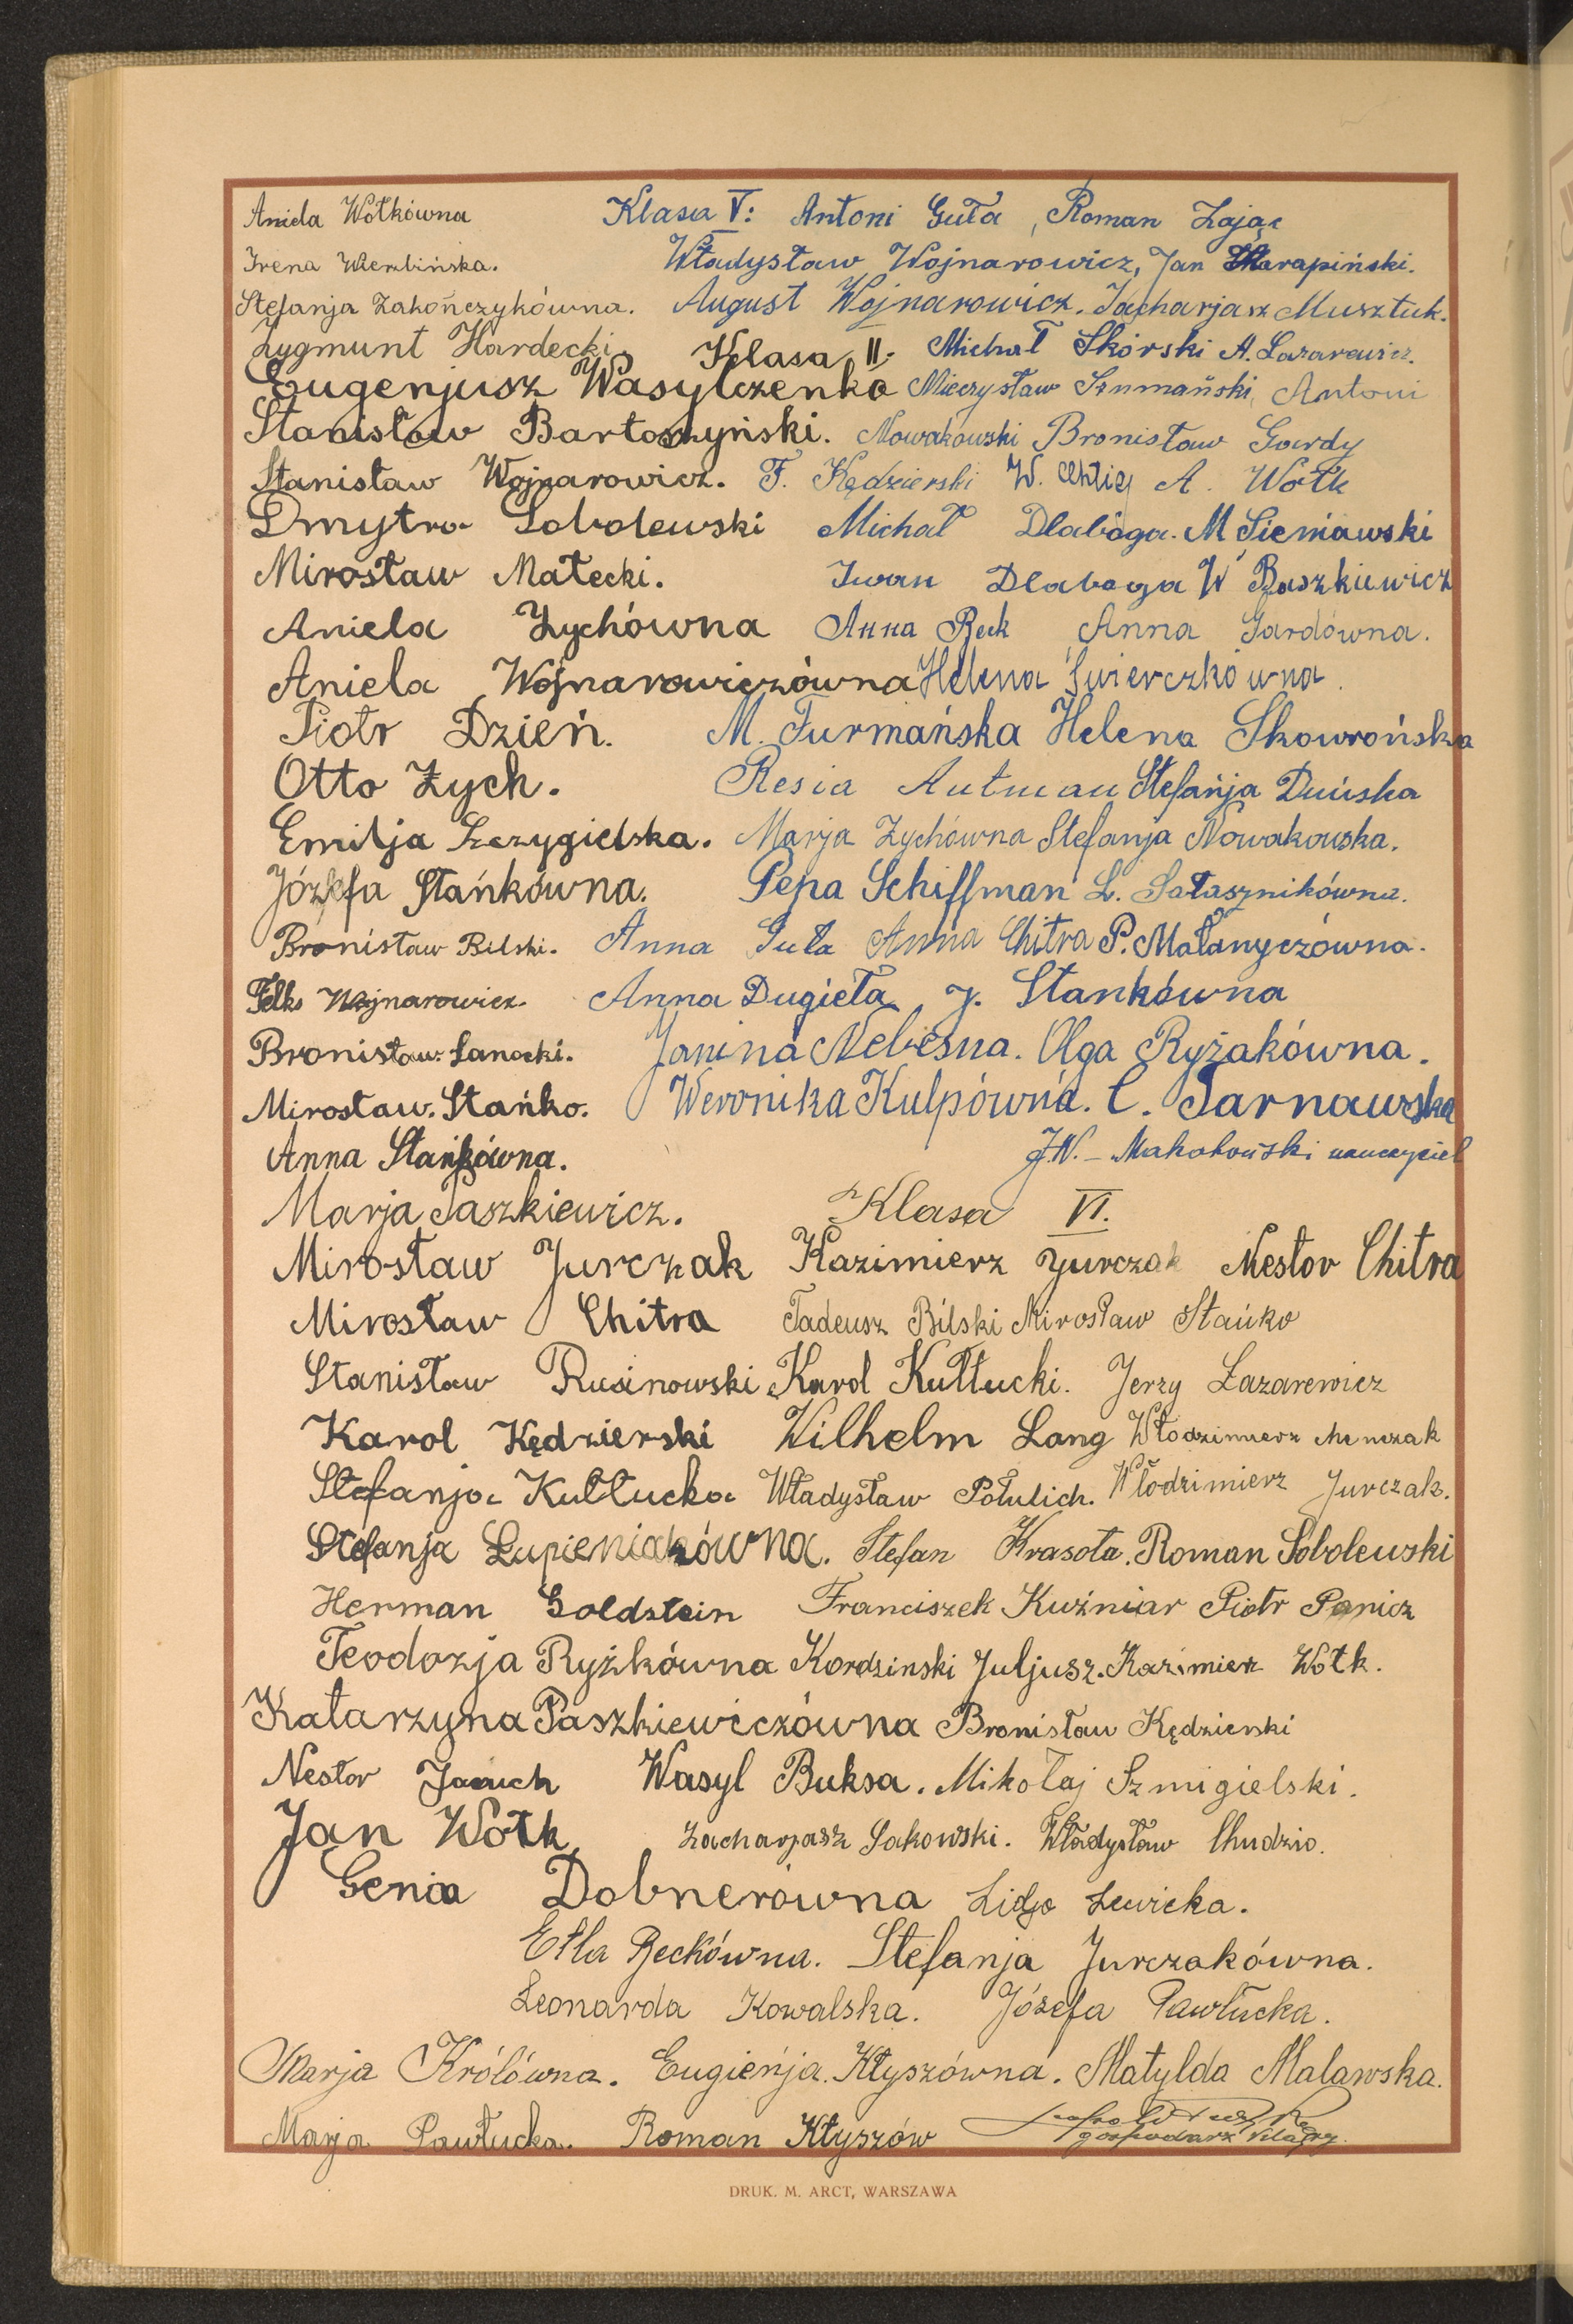 Aniela Wołkówna Klasa V: Antoni Guła, Roman Zając
Irena Wierbińska. Władysław Wojnarowicz, Jan Skarapiński.
Stefanja Zakończykówna. August Wojnarowicz. Zacharjasz Musztuk.
Zygmunt Hardecki. Klasa II. Michał Skórski A. Lazarewicz.
Eugenjusz Wasylczenko Mieczysław Szumański, Antoni
Stanisław Bartoszyński. Nowakowski Bronisław Gardy
Stanisław Wojnarowicz. F. Kędzierski W. A. Wołk
Dmytro Sobolewski Michał Dlaboga. M Sieniawski
Mirosław Małecki. Iwan Dlaboga W Paszkiewicz
Aniela Zychówna Anna Reck Anna Gardówna.
Aniela Wojnarowiczówna Helena Świerczkówna.
Piotr Dzień. M. Furmańska Helena Skowrońska
Otto Zych. Resia Autman Stefanja Duńska
Emilja Szczygielska. Marja Zychówna Stefanja Nowakowska.
Józefa Stańkówna. Pepa Schiffman L. Sałasznikówna.
Bronisław Bilski. Anna Guła Anna Chitra P. Małanyczówna.
Felks Wojnarowicz. Anna Dugieła, J. Stankówna
Bronisław Sanocki. Janina Nebesna. Olga Ryżakówna.
Mirosław. Stańko. Weronika Kulpówna. C. Tarnawska
Anna Stańkówna. J.W. - Makohoński nauczyciel
Marja Paszkiewicz. Klasa VI.
Mirosław Jurczak Kazimierz Jurczak Nestor Chitra
Mirosław Chitra Tadeusz Bilski Mirosław Stańko
Stanisław Rusinowski Karol Kułłucki. Jerzy Łazarewicz
Karol Kędzierski Wilhelm Lang Włodzimierz Menczak
Stefanja Kułłucka Władysław Połulich. Włodzimierz Jurczak.
Stefanja Łupieniakówna. Stefan Krasota. Roman Sobolewski
Herman Goldstein Franciszek Kuźniar Piotr Panicz
Teodozja Ryżkówna Kordzinski Juljusz. Kazimierz Wołk.
Katarzyna Paszkiewiczówna Bronisław Kędzierski
Nestor Jaruch Wasyl Buksa. Mikołaj Szmigielski.
Jan Wołk, Zacharjasz Sakowski. Władysław Chudzio.
Genia Dobnerówna Lidja Lewicka.
Etla Reckówna. Stefanja Jurczakówna.
Leonarda Kowalska. Józefa Pawłucka.
Marja Królówna. Eugienja. Kłyszówna. Matylda Malawska.
Marja Pawłucka. Roman Kłyszów
gospodarz klasy
DRUK. M. ARCT, WARSZAWA